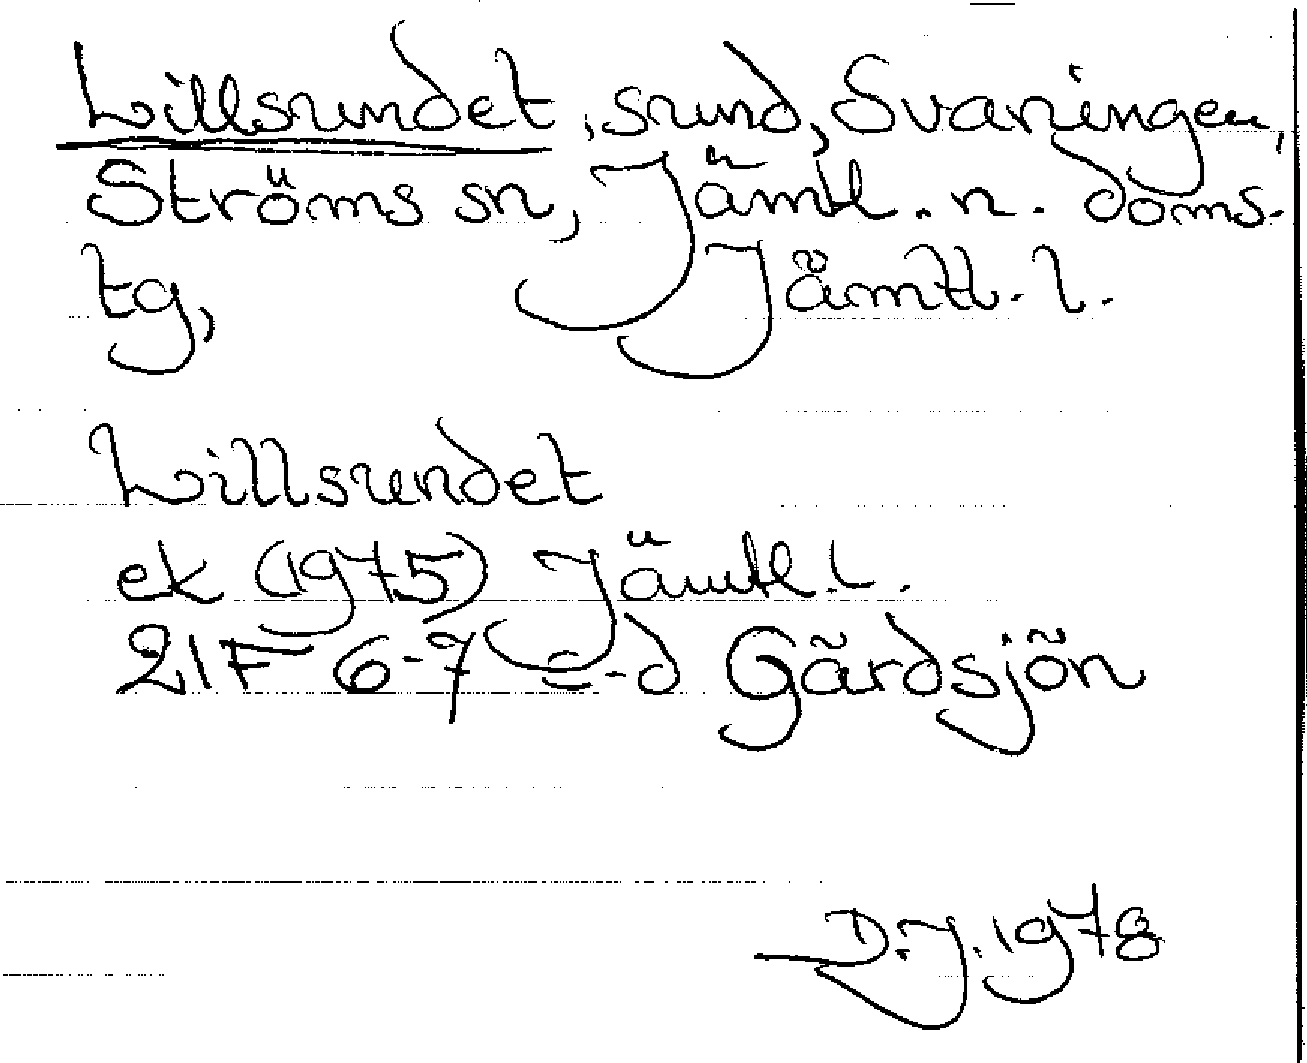 Lillsundet, sund, Svaningen,
Ströms sn, Jämtl. n. doms-
tg, Jämtl. l.
Lillsundet
ek (1975) Jämtl. l.
21F 6-7 c-d Gärdsjön
D.J. 1978